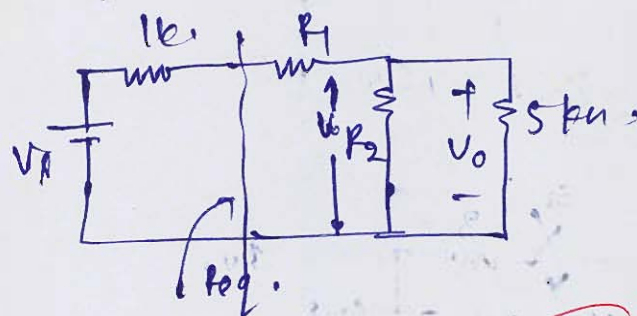 1k. R1
VA V0 R2 + V0 - 5 kΩ.
Req.